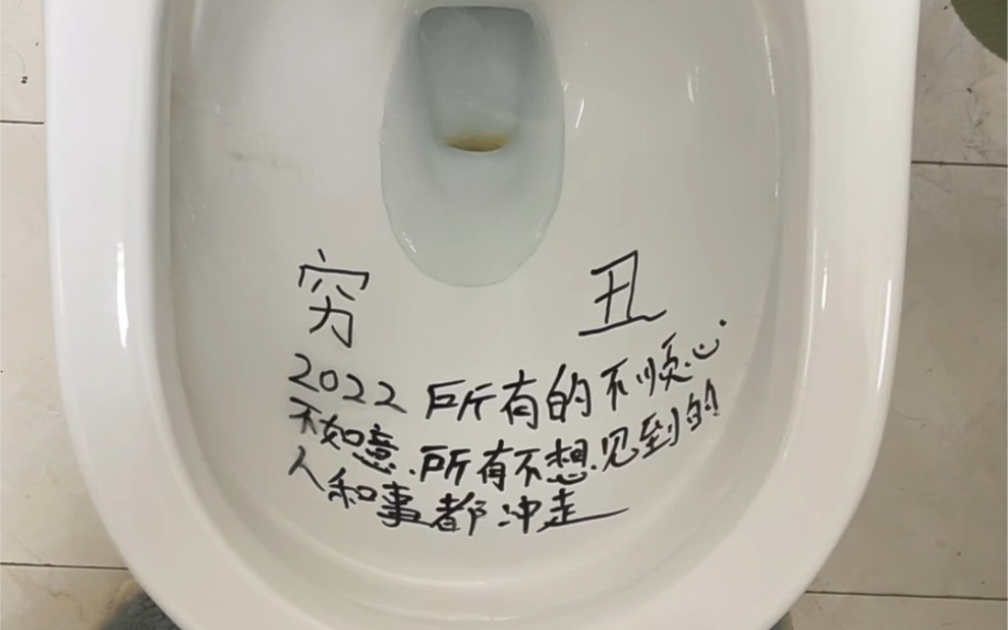 穷 丑
2022 所有的不顺心
不如意.所有不想见到的
人和事都冲走